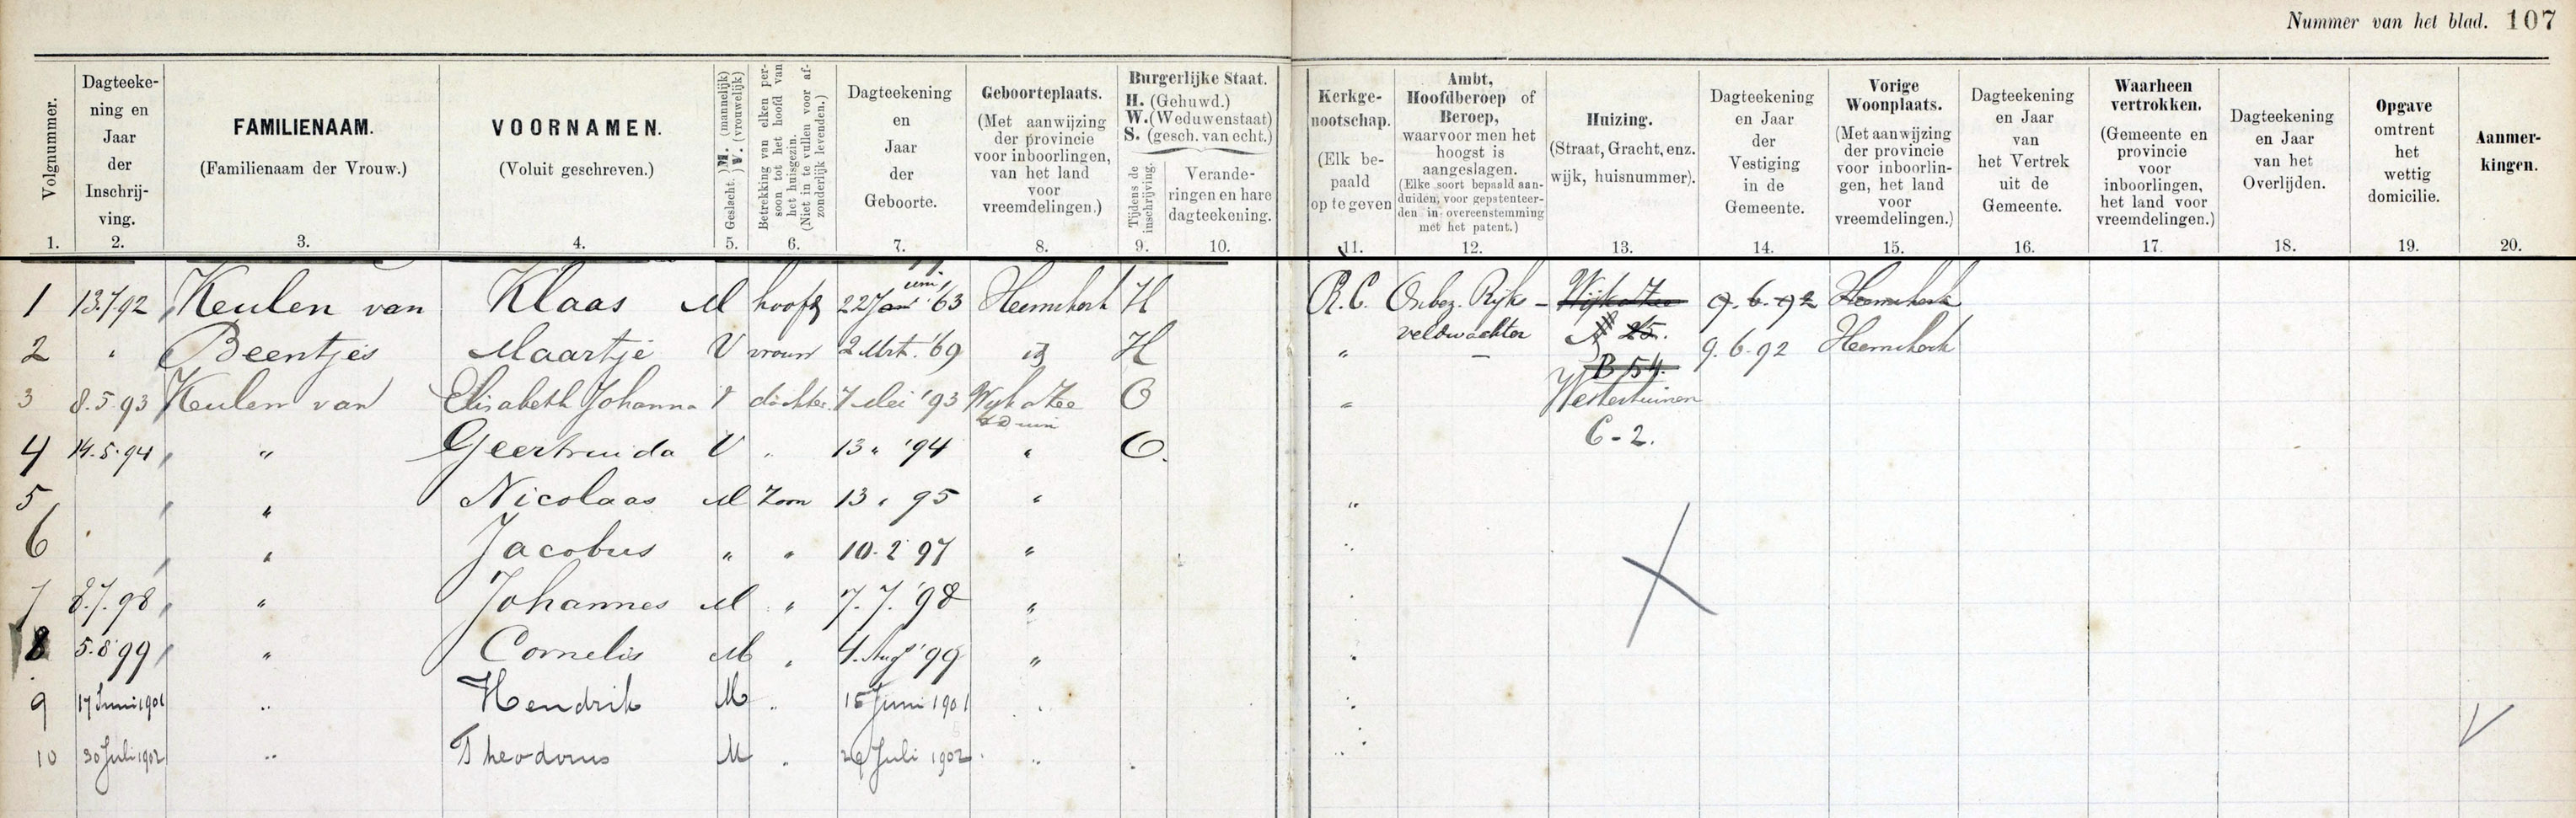 Nummer van het blad. 107
Volgnummer.
1.
Dagteeke-
ning en
Jaar
der
Inschrij-
ving.
2.
FAMILIENAAM.
(Familienaam der Vrouw.)
3.
VOORNAMEN.
(Voluit geschreven.)
4.
Geslacht. M. (mannelijk) V. (vrouwelijk)
5.
Betrekking van elken per-
soon tot het hoofd van
het huisgezin.
(Niet in te vullen voor af-
zonderlijk levenden.)
6.
Dagteekening
en
Jaar
der
Geboorte.
7.
Geboorteplaats.
(Met aanwijzing
der provincie
voor inboorlingen,
van het land
voor
vreemdelingen.)
8.
Burgerlijke Staat.
H. (Gehuwd.)
W. (Weduwenstaat)
S. (gesch. van echt.)
Tijdens de
inschrijving.
9.
Verande-
ringen en hare
dagteekening.
10.
Kerkge-
nootschap.
(Elk be-
paald
op te geven
11.
Ambt,
Hoofdberoep of
Beroep,
waarvoor men het
hoogst is
aangeslagen.
(Elke soort bepaald aan-
duiden, voor gepatenteer-
den in overeenstemming
met het patent.)
12.
Huizing.
(Straat, Gracht, enz.
wijk, huisnummer).
13.
Dagteekening
en Jaar
der
Vestiging
in de
Gemeente.
14.
Vorige
Woonplaats.
(Met aanwijzing
der provincie
voor inboorlin-
gen, het land
voor
vreemdelingen.)
15.
Dagteekening
en Jaar
van
het Vertrek
uit de
Gemeente.
16.
Waarheen
vertrokken.
(Gemeente en
provincie
voor
inboorlingen,
het land voor
vreemdelingen.)
17.
Dagteekening
en Jaar
van het
Overlijden.
18.
Opgave
omtrent
het
wettig
domicilie.
19.
Aanmer-
kingen.
20.
1 13.7.92 Keulen van Klaas M hoofd 22 Juni '63 Heemskerk H R.C. Onbez. Rijks- Wijk a Zee 9.6.92 Heemskerk
veldwachter 25.
2 " Beentjes Maartje V vrouw 2 Mrt. '69 id H " – 9.6.92 Heemskerk
B 54.
3 8.5.93 Keulen van Elisabeth Johanna V dochter 7 Mei '93 Wijk a Zee O "
& Duin
Westertuinen
C-2.
4 14.5.94 " Geertruida V " 13 " '94 " O.
5 " Nicolaas M Zoon 13 " 95 " "
6 " Jacobus " " 10.2 97 " "
7 8.7.98 " Johannes M " 7.7.'98 " "
8 5.8 99 " Cornelis M " 4. Aug '99 " "
9 17 Juni 1901 " Hendrik M " 15 Juni 1901 " "
10 30 Juli 1902 " Theodorus M " 29 Juli 1902 " "